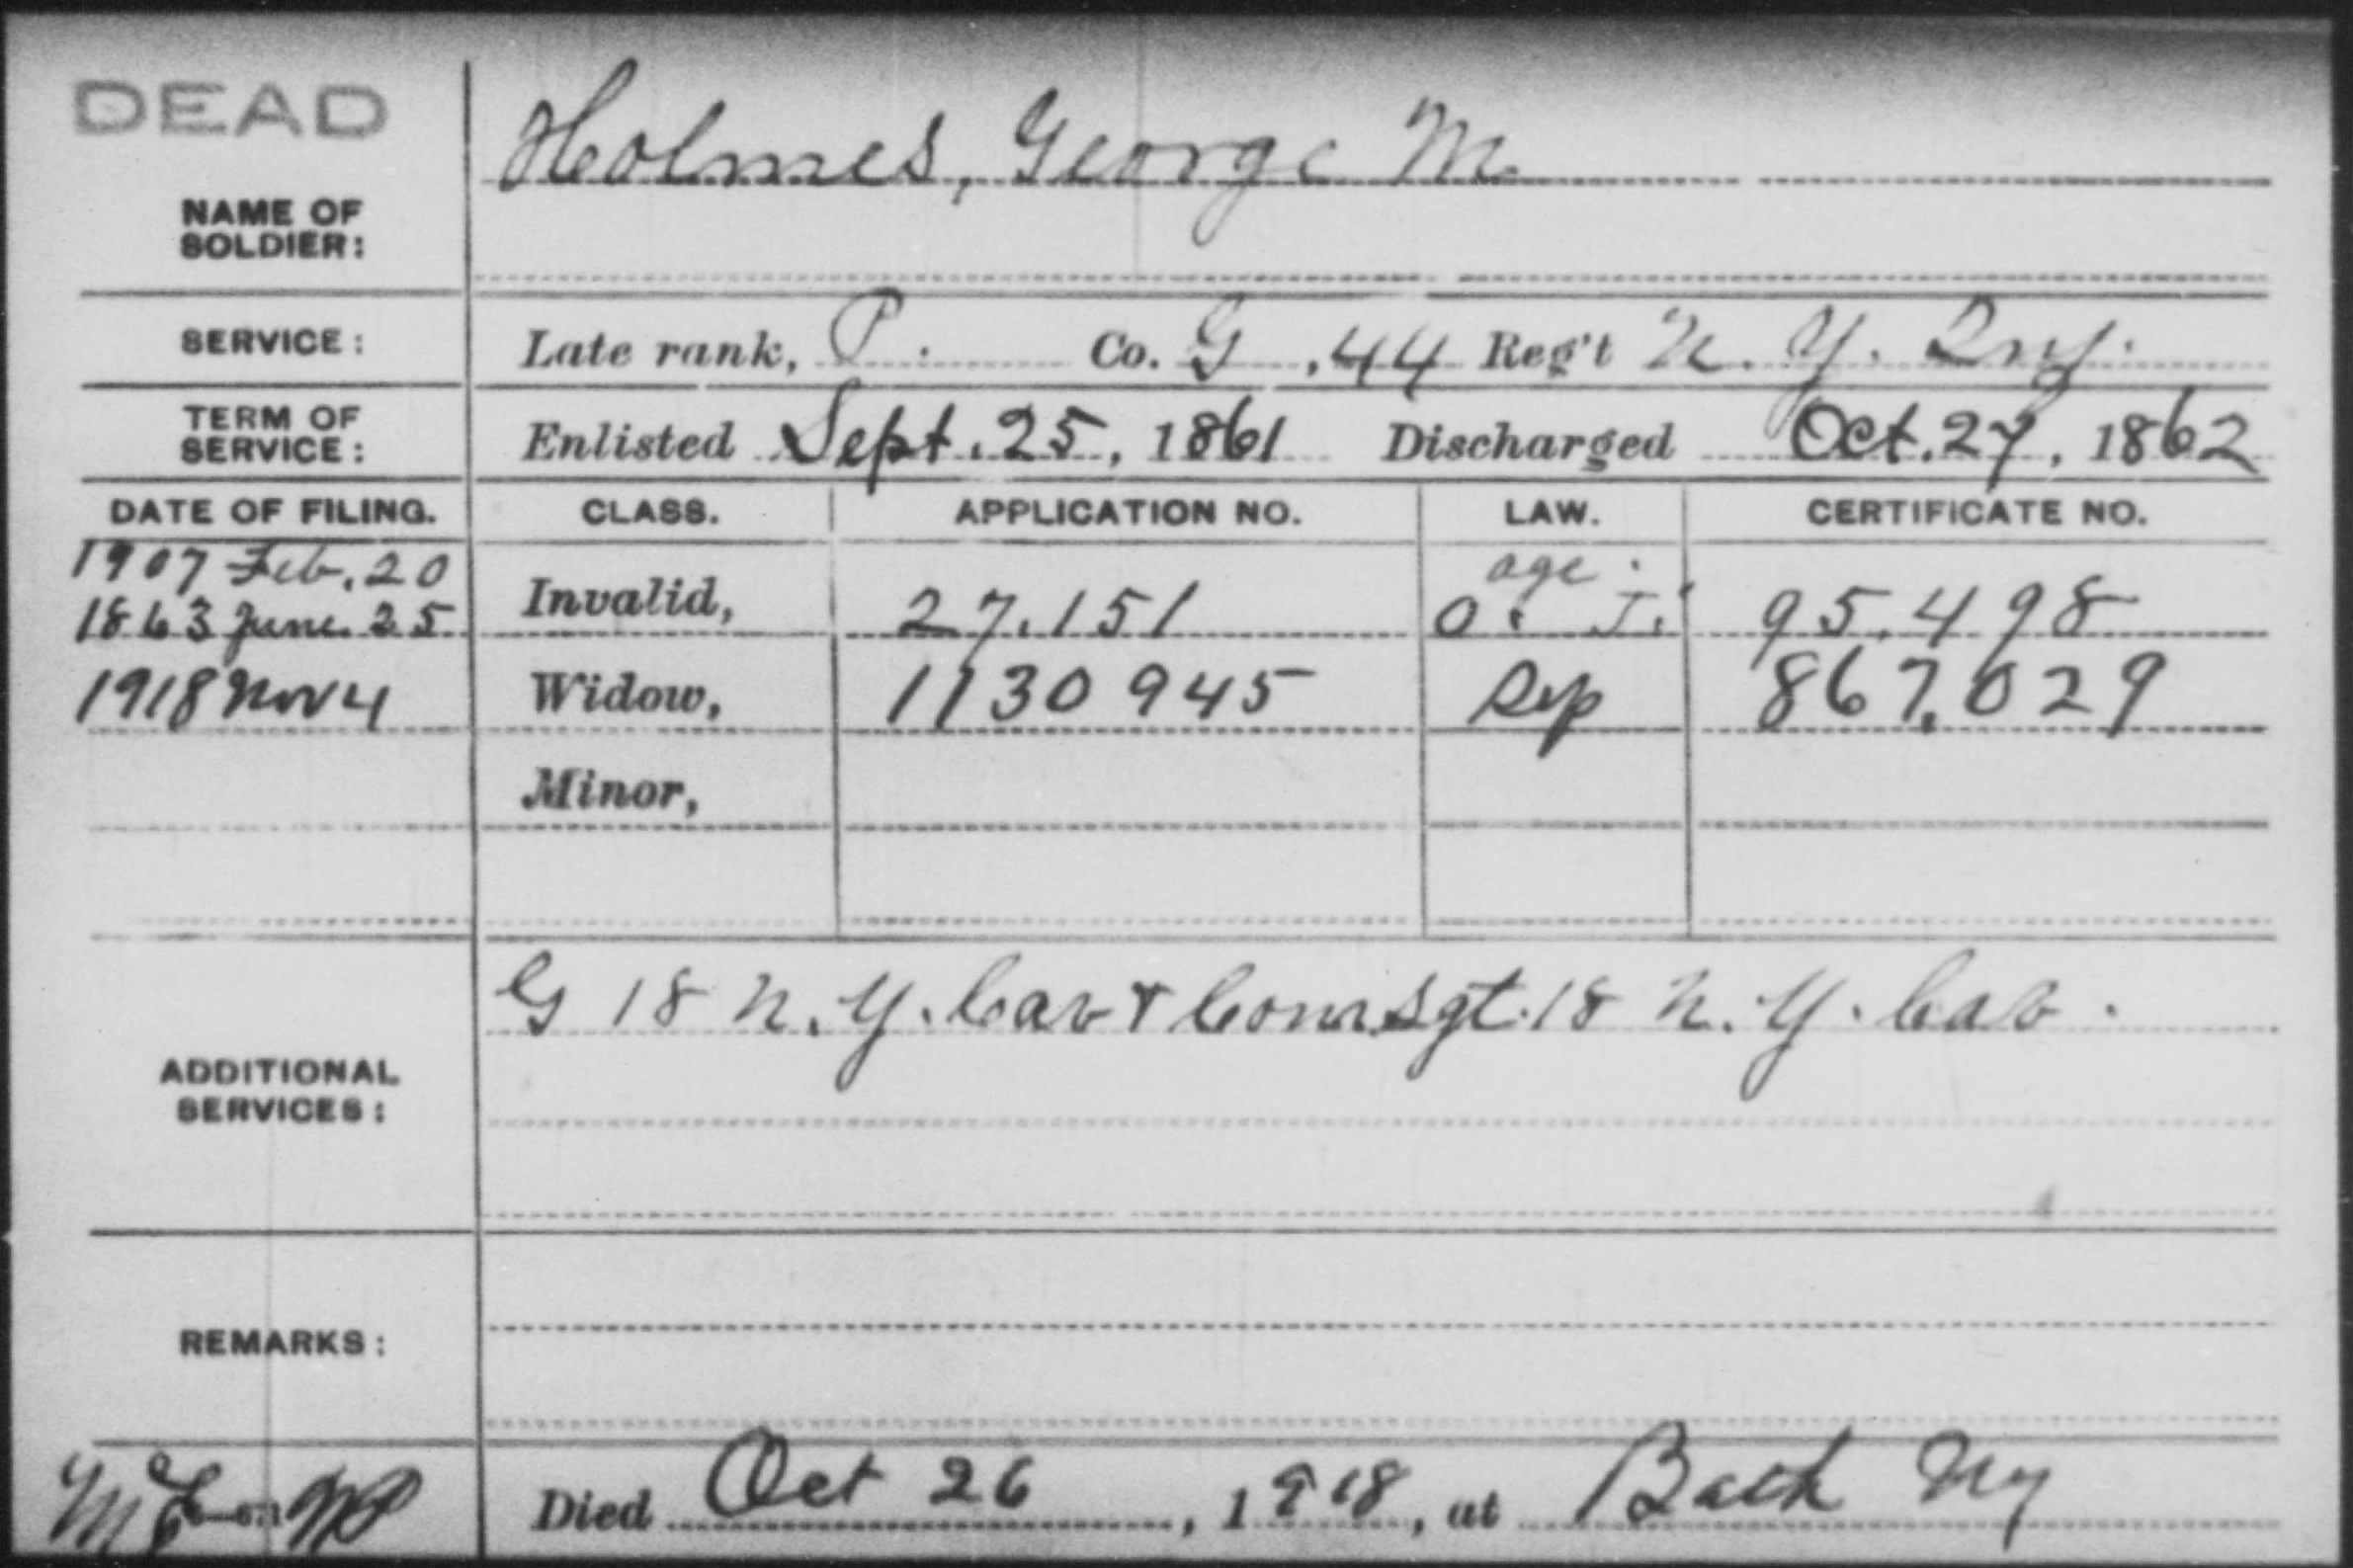 DEAD
Holmes, George M.
NAME OF
SOLDIER:
SERVICE: Late rank, P. Co. G, 44 Reg't N. Y. Inf.
TERM OF
SERVICE: Enlisted Sept. 25, 1861 Discharged Oct. 27, 1862
DATE OF FILING. CLASS. APPLICATION NO. LAW. CERTIFICATE NO.
1907 Feb. 20 age.
1863 June. 25 Invalid, 27.151 O. J. 95.498
1918 Nov 4 Widow, 1130945 Dep 867.029
Minor,
G 18 N. Y. Cav & Com Sgt. 18 N. Y. Cav.
ADDITIONAL
SERVICES:
REMARKS:
Died Oct 26, 1918, at Bath NY